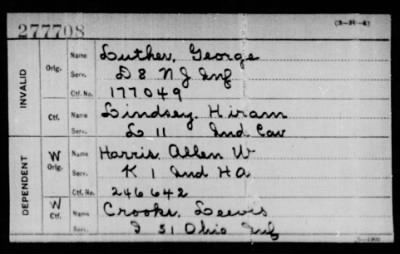 277708
INVALID
Orig.
Name Luther, George
Serv. D 8 N J Inf
Ctf. No. 177049
Ctf.
Name Lindsey, Hiram
Serv. L 11 Ind Cav
DEPENDENT
W Orig.
Name Harris, Allen W
Serv. K 1 Ind HA
Ctf. No. 246642
W Ctf.
Name Crooks, Lewis
I 51 Ohio Inf